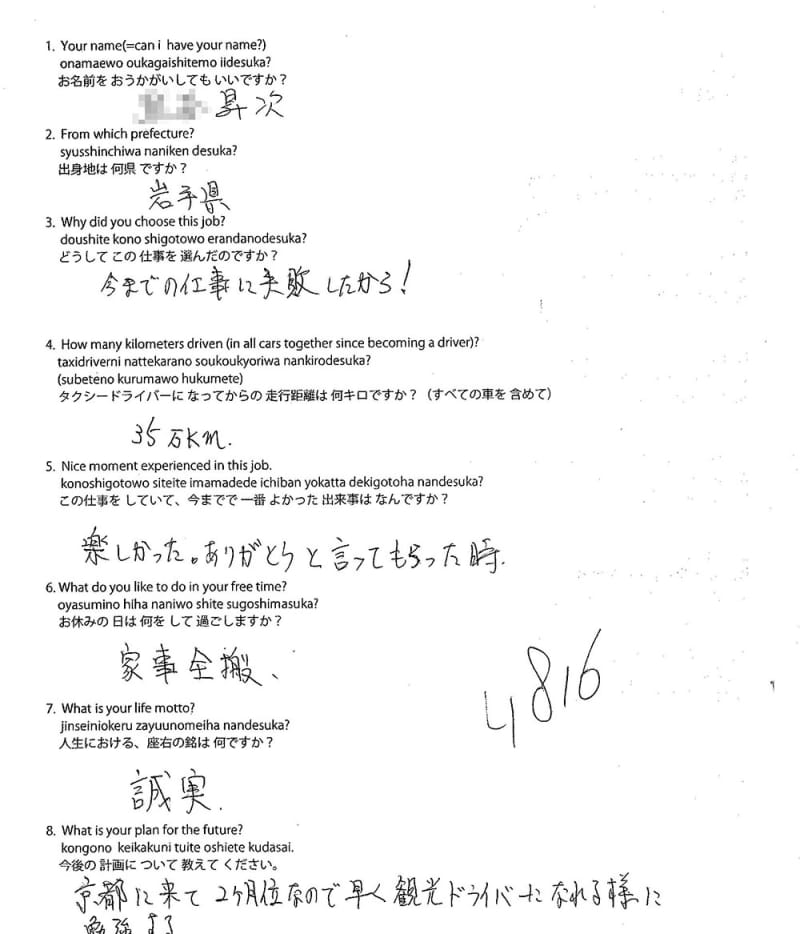 1. Your name(=can i have your name?)
onamaewo oukagaishitemo iidesuka?
お名前を おうかがいしても いいですか？
昇次
2. From which prefecture?
syusshinchiwa naniken desuka?
出身地は 何県 ですか？
岩手県
3. Why did you choose this job?
doushite kono shigotowo erandanodesuka?
どうして この 仕事を 選んだのですか？
今までの仕事に失敗したから!
4. How many kilometers driven (in all cars together since becoming a driver)?
taxidriverni nattekarano soukoukyoriwa nankirodesuka?
(subeteno kurumawo hukumete)
タクシードライバーに なってからの 走行距離は 何キロですか？（すべての車を 含めて）
35万KM.
5. Nice moment experienced in this job.
konoshigotowo siteite imamadede ichiban yokatta dekigotoha nandesuka?
この仕事を していて、今までで 一番 よかった 出来事は なんですか？
楽しかった。ありがとうと言ってもらった時.
6. What do you like to do in your free time?
oyasumino hiha naniwo shite sugoshimasuka?
お休みの 日は 何を して 過ごしますか？
家事全搬、
4816
7. What is your life motto?
jinseiniokeru zayuunomeiha nandesuka?
人生における、座右の銘は 何ですか？
誠実.
8. What is your plan for the future?
kongono keikakuni tuite oshiete kudasai.
今後の 計画に ついて 教えて ください。
京都に来て2ヶ月位なので早く観光ドライバーになれる様に
勉強する